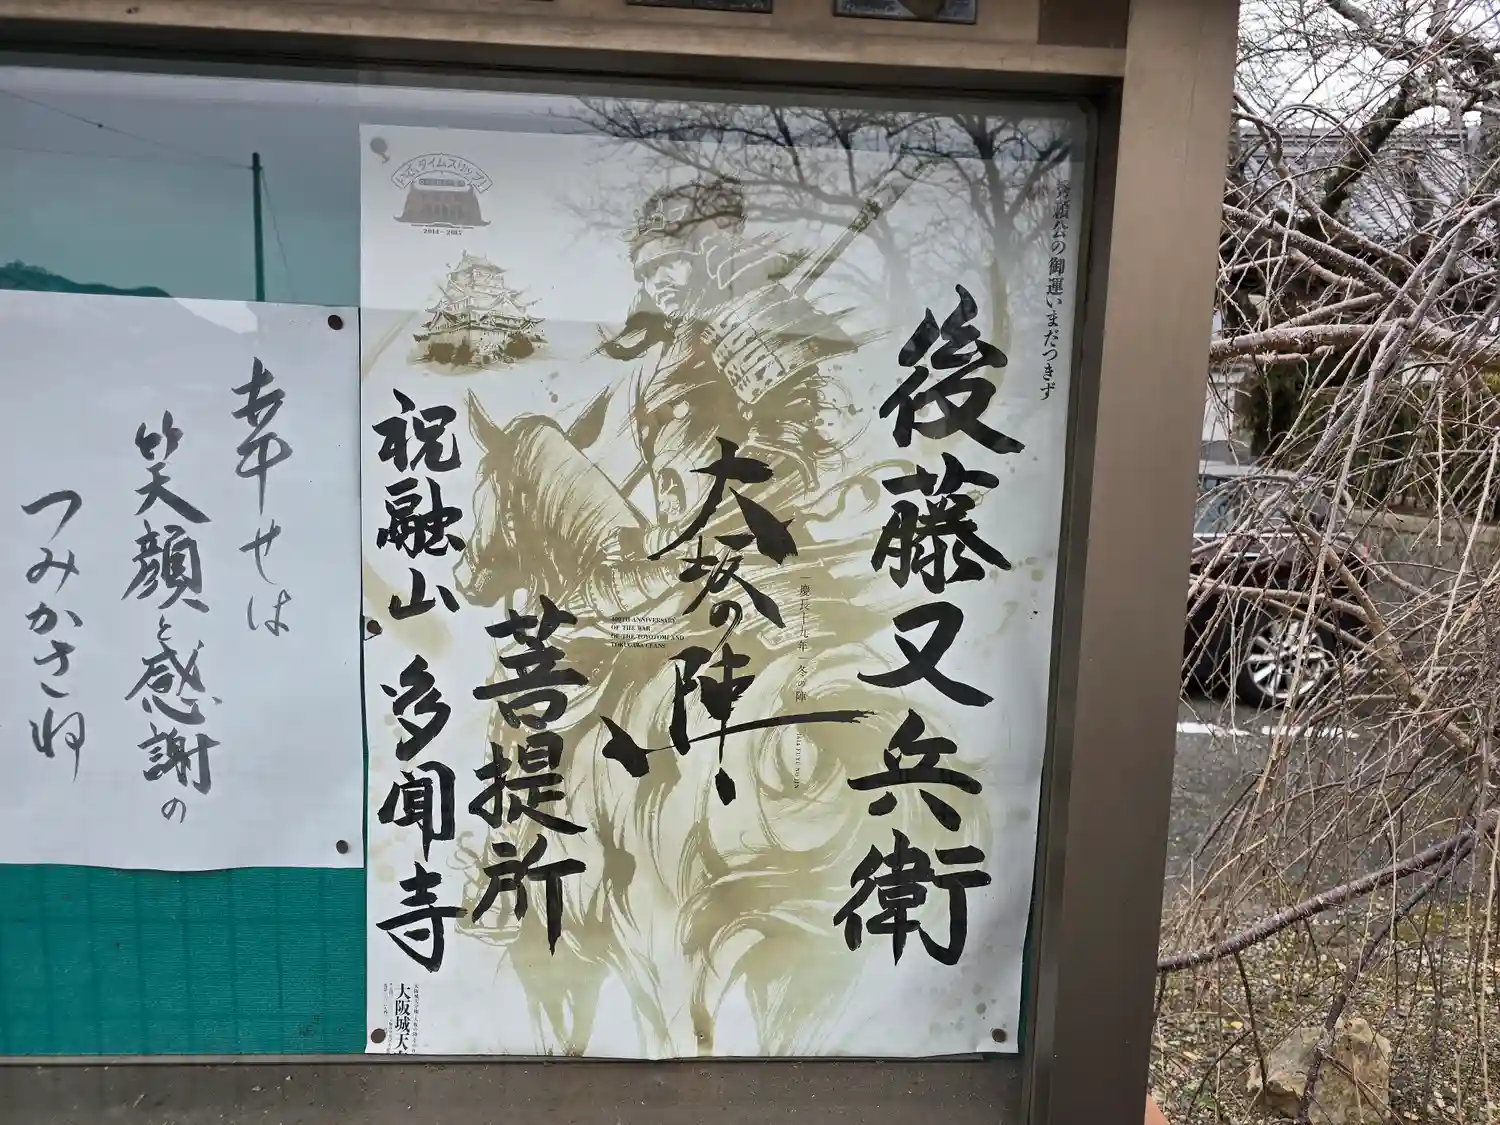 秀頼公の御運いまだつきず
後藤又兵衛
慶長十九年 冬の陣
1614 FUYU NO JIN
大坂の陣
400TH ANNIVERSARY
OF THE WAR
OF THE TOYOTOMI AND
TOKUGAWA CLANS
菩提所
祝融山 多聞寺
いざ、タイムスリップ!
2014-2015
大阪城天
幸せは
笑顔と感謝の
つみかさね